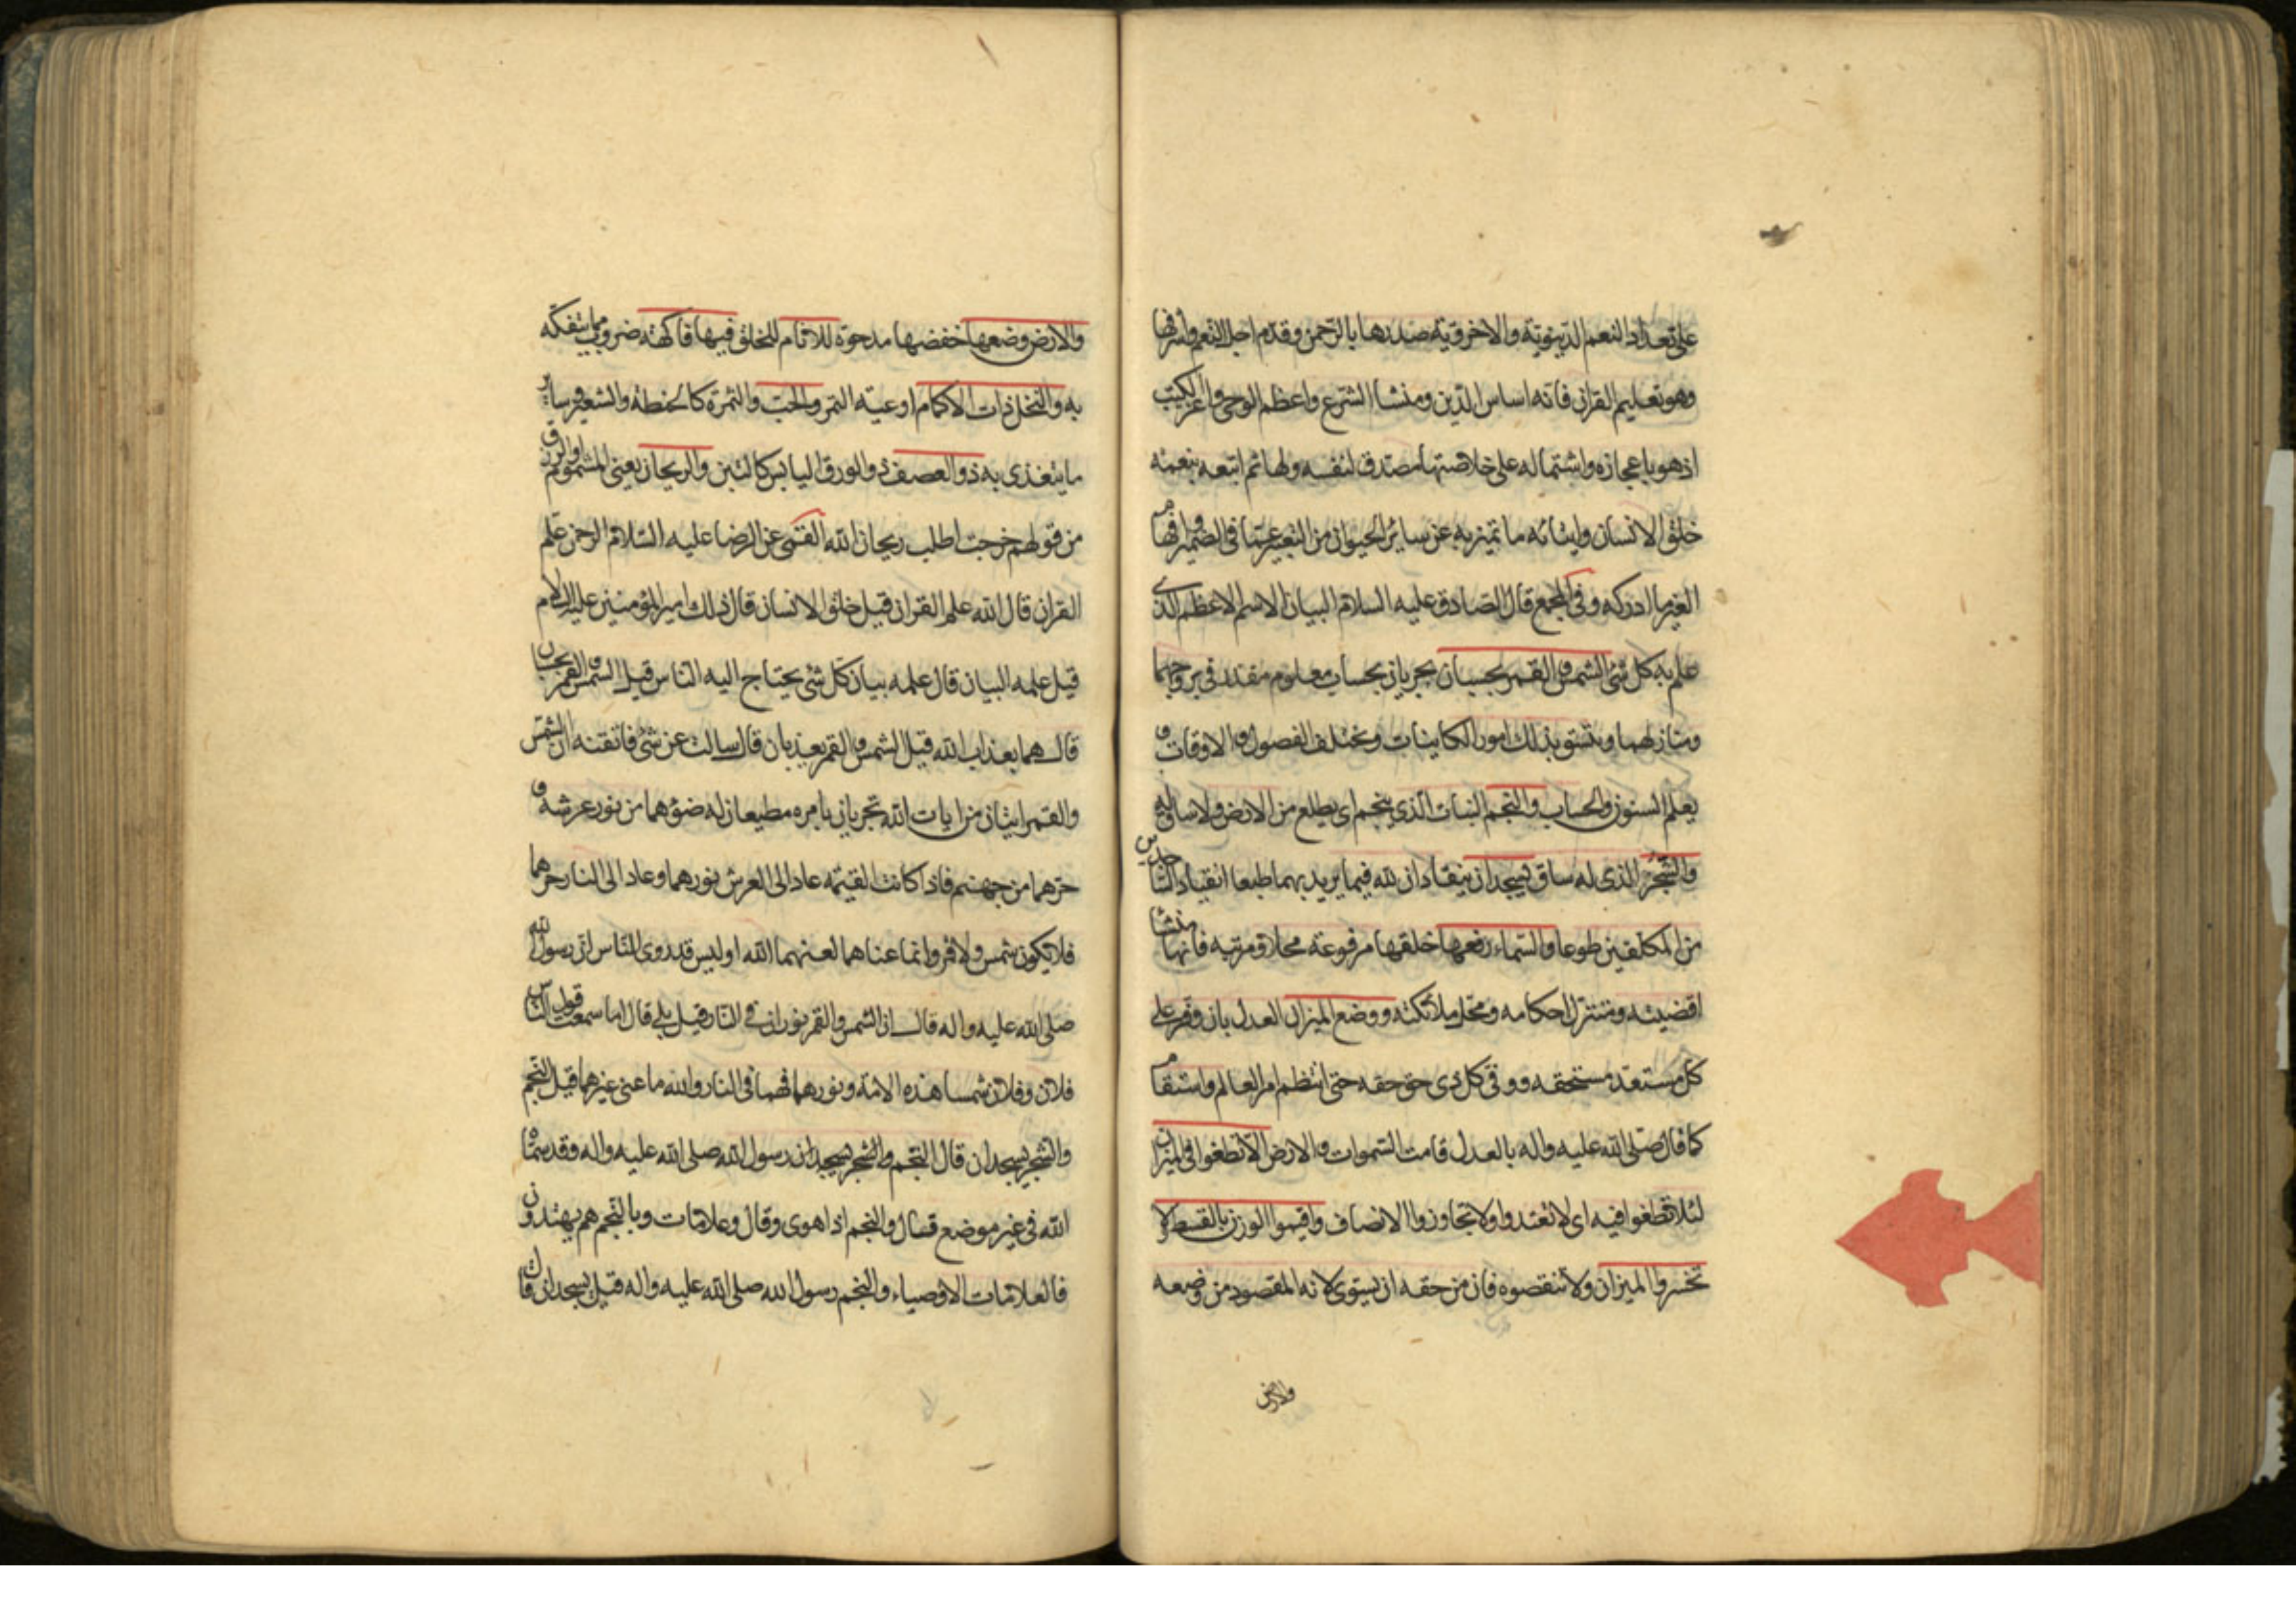 على تعداد النعم الدينوية والاخروية صدرها بالرحمن وقدم اجل النعم واشرفها
وهو تعليم القران فانه اساس الدين ومنشا الشرع واعظم الوحى واعز الكتب
اذ هو باعجازه واشتماله على خلاصتها مصدق لنفسه ولها ثم اتبعه بنعمة
خلق الانسان وايتائه ما تميز به عن سائر الحيوان من التعبير عما فى الضمير وافهام
الغير ما ادركه وفى المجمع قال الصادق عليه السلام البيان الاسم الاعظم الذى
علم به كل شئ الشمس والقمر بحسبان يجريان بحساب معلوم مقدر فى بروجهما
ومنازلهما ويتسق بذلك امور الكاينات ويختلف الفصول والاوقات و
يعلم السنون والحساب والنجم النبات الذي ينجم اى يطلع من الارض ولا ساق له
والشجر الذى له ساق يسجدان ينقادان لله فيما يريد بهما طبعا انقياد الساجدين
من المكلفين طوعا والسماء رفعها خلقها مرفوعة محلا ومرتبة فانها منشا
اقضيته ومتنزل احكامه ومحل ملائكته ووضع الميزان العدل بان وفر على
كل مستعد مستحقه ووفى كل ذى حق حقه حتى انتظم امر العالم واستقام
كما قال صلى الله عليه واله بالعدل قامت السموات والارض الا تطغوا فى الميزان
لئلا تطغوا فيه اى لا تعتدوا ولا تجاوزوا الانصاف واقيموا الوزن بالقسط لا
تخسروا الميزان ولا تنقصوه فان من حقه ان يستوى لانه المقصود من وضعه
والارض
والارض وضعها خفضها مدحوة للانام للخلق فيها فاكهة ضروب مما يتفكه
به والنخل ذات الاكمام اوعية التمر والحب والثمرة كالحنطة والشعير وساير
ما يتغذى به ذو العصف ذو الورق اليابس كالتبن والريحان يعنى المشموم او الرزق
من قولهم خرجت اطلب ريحان الله القمى عن الرضا عليه السلام الرحمن علم
القران قال الله علم القران قيل خلق الانسان قال ذلك امير المؤمنين عليه السلام
قيل علمه البيان قال علمه بيان كل شئ يحتاج اليه الناس قيل الشمس والقمر بحسبان
قال هما بعذاب الله قيل الشمس والقمر يعذبان قال سالت عن شئ فاتقنه ان الشمس
والقمر ايتان من ايات الله تجريان بامره مطيعان له ضوءهما من نور عرشه و
حرهما من جهنم فاذا كانت القيمة عاد الى العرش نورهما وعاد الى النار حرهما
فلا يكون شمس ولا قمر وانما عناهما لعنهما الله اوليس قد روى الناس ان رسول الله
صلى الله عليه واله قال ان الشمس والقمر نوران فى النار قيل بلى قال اما سمعت قول الناس
فلان وفلان شمسا هذه الامة ونورهما فهما فى النار والله ما عنى غيرهما قيل النجم
والشجر يسجدان قال النجم والشجر يسجدان رسول الله صلى الله عليه واله وقد سماه
الله فى غير موضع فقال والنجم اذا هوى وقال وعلامات وبالنجم هم يهتدون
فالعلامات الاوصياء والنجم رسول الله صلى الله عليه واله قيل يسجدان قال